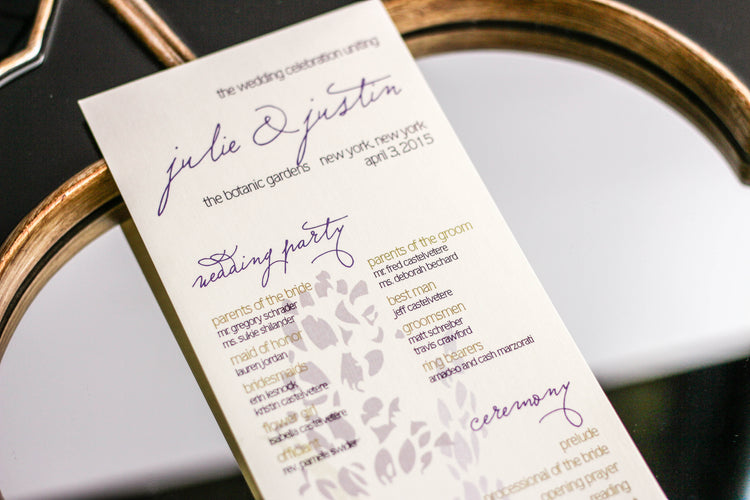 the wedding celebration uniting
julie & justin
the botanic gardens new york, new york
april 3, 2015
wedding party
parents of the bride
mr. gregory schrader
ms. sukie shilander
maid of honor
lauren jordan
bridesmaids
erin lesnock
kristin castelvetere
flower girl
isabella castelvetere
officient
rev. pamele swider
parents of the groom
mr. fred castelvetere
ms. deborah bechard
best man
jeff castelvetere
groomsmen
matt schreiber
travis crawford
ring bearers
amadeo and cash marzorati
ceremony
prelude
professional of the bride
opening prayer